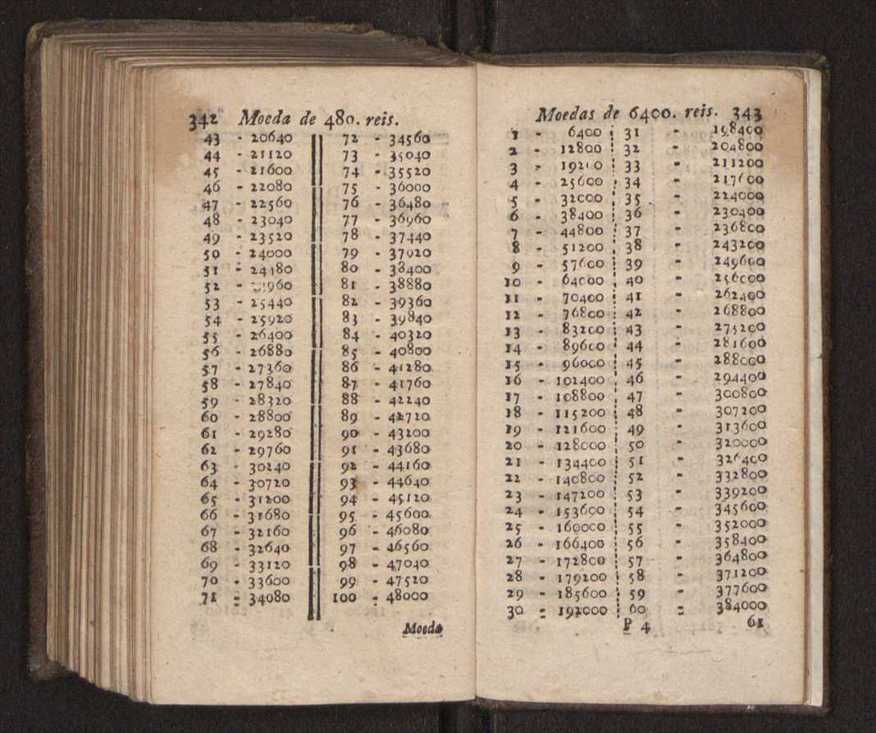 342 Moeda de 480. reis.
43 - 20640 72 - 34560
44 - 21120 73 - 35040
45 - 21600 74 - 35520
46 - 22080 75 - 36000
47 - 22560 76 - 36480
48 - 23040 77 - 36960
49 - 23520 78 - 37440
50 - 24000 79 - 37920
51 - 24480 80 - 38400
52 - 960 81 - 38880
53 - 25440 82 - 39360
54 - 25920 83 - 39840
55 - 26400 84 - 40320
56 - 26880 85 - 40800
57 - 27360 86 - 41280
58 - 27840 87 - 41760
59 - 28320 88 - 42240
60 - 28800 89 - 42720
61 - 29280 90 - 43200
62 - 29760 91 - 43680
63 - 30240 92 - 44160
64 - 30720 93 - 44640
65 - 31200 94 - 45120
66 - 31680 95 - 45600
67 - 32160 96 - 46080
68 - 32640 97 - 46560
69 - 33120 98 - 47040
70 - 33600 99 - 47520
71 - 34080 100 - 48000
Moeda
Moedas de 6400. reis. 343
1 - 6400 31 - 198400
2 - 12800 32 - 204800
3 - 19200 33 - 211200
4 - 25600 34 - 217600
5 - 32000 35 - 224000
6 - 38400 36 - 230400
7 - 44800 37 - 236800
8 - 51200 38 - 243200
9 - 57600 39 - 249600
10 - 64000 40 - 256000
11 - 70400 41 - 262400
12 - 76800 42 - 268800
13 - 83200 43 - 275200
14 - 89600 44 - 281600
15 - 96000 45 - 288000
16 - 102400 46 - 294400
17 - 108800 47 - 300800
18 - 115200 48 - 307200
19 - 121600 49 - 313600
20 - 128000 50 - 320000
21 - 134400 51 - 326400
22 - 140800 52 - 332800
23 - 147200 53 - 339200
24 - 153600 54 - 345600
25 - 160000 55 - 352000
26 - 166400 56 - 358400
27 - 172800 57 - 364800
28 - 179200 58 - 371200
29 - 185600 59 - 377600
30 - 192000 60 - 384000
P 4 61